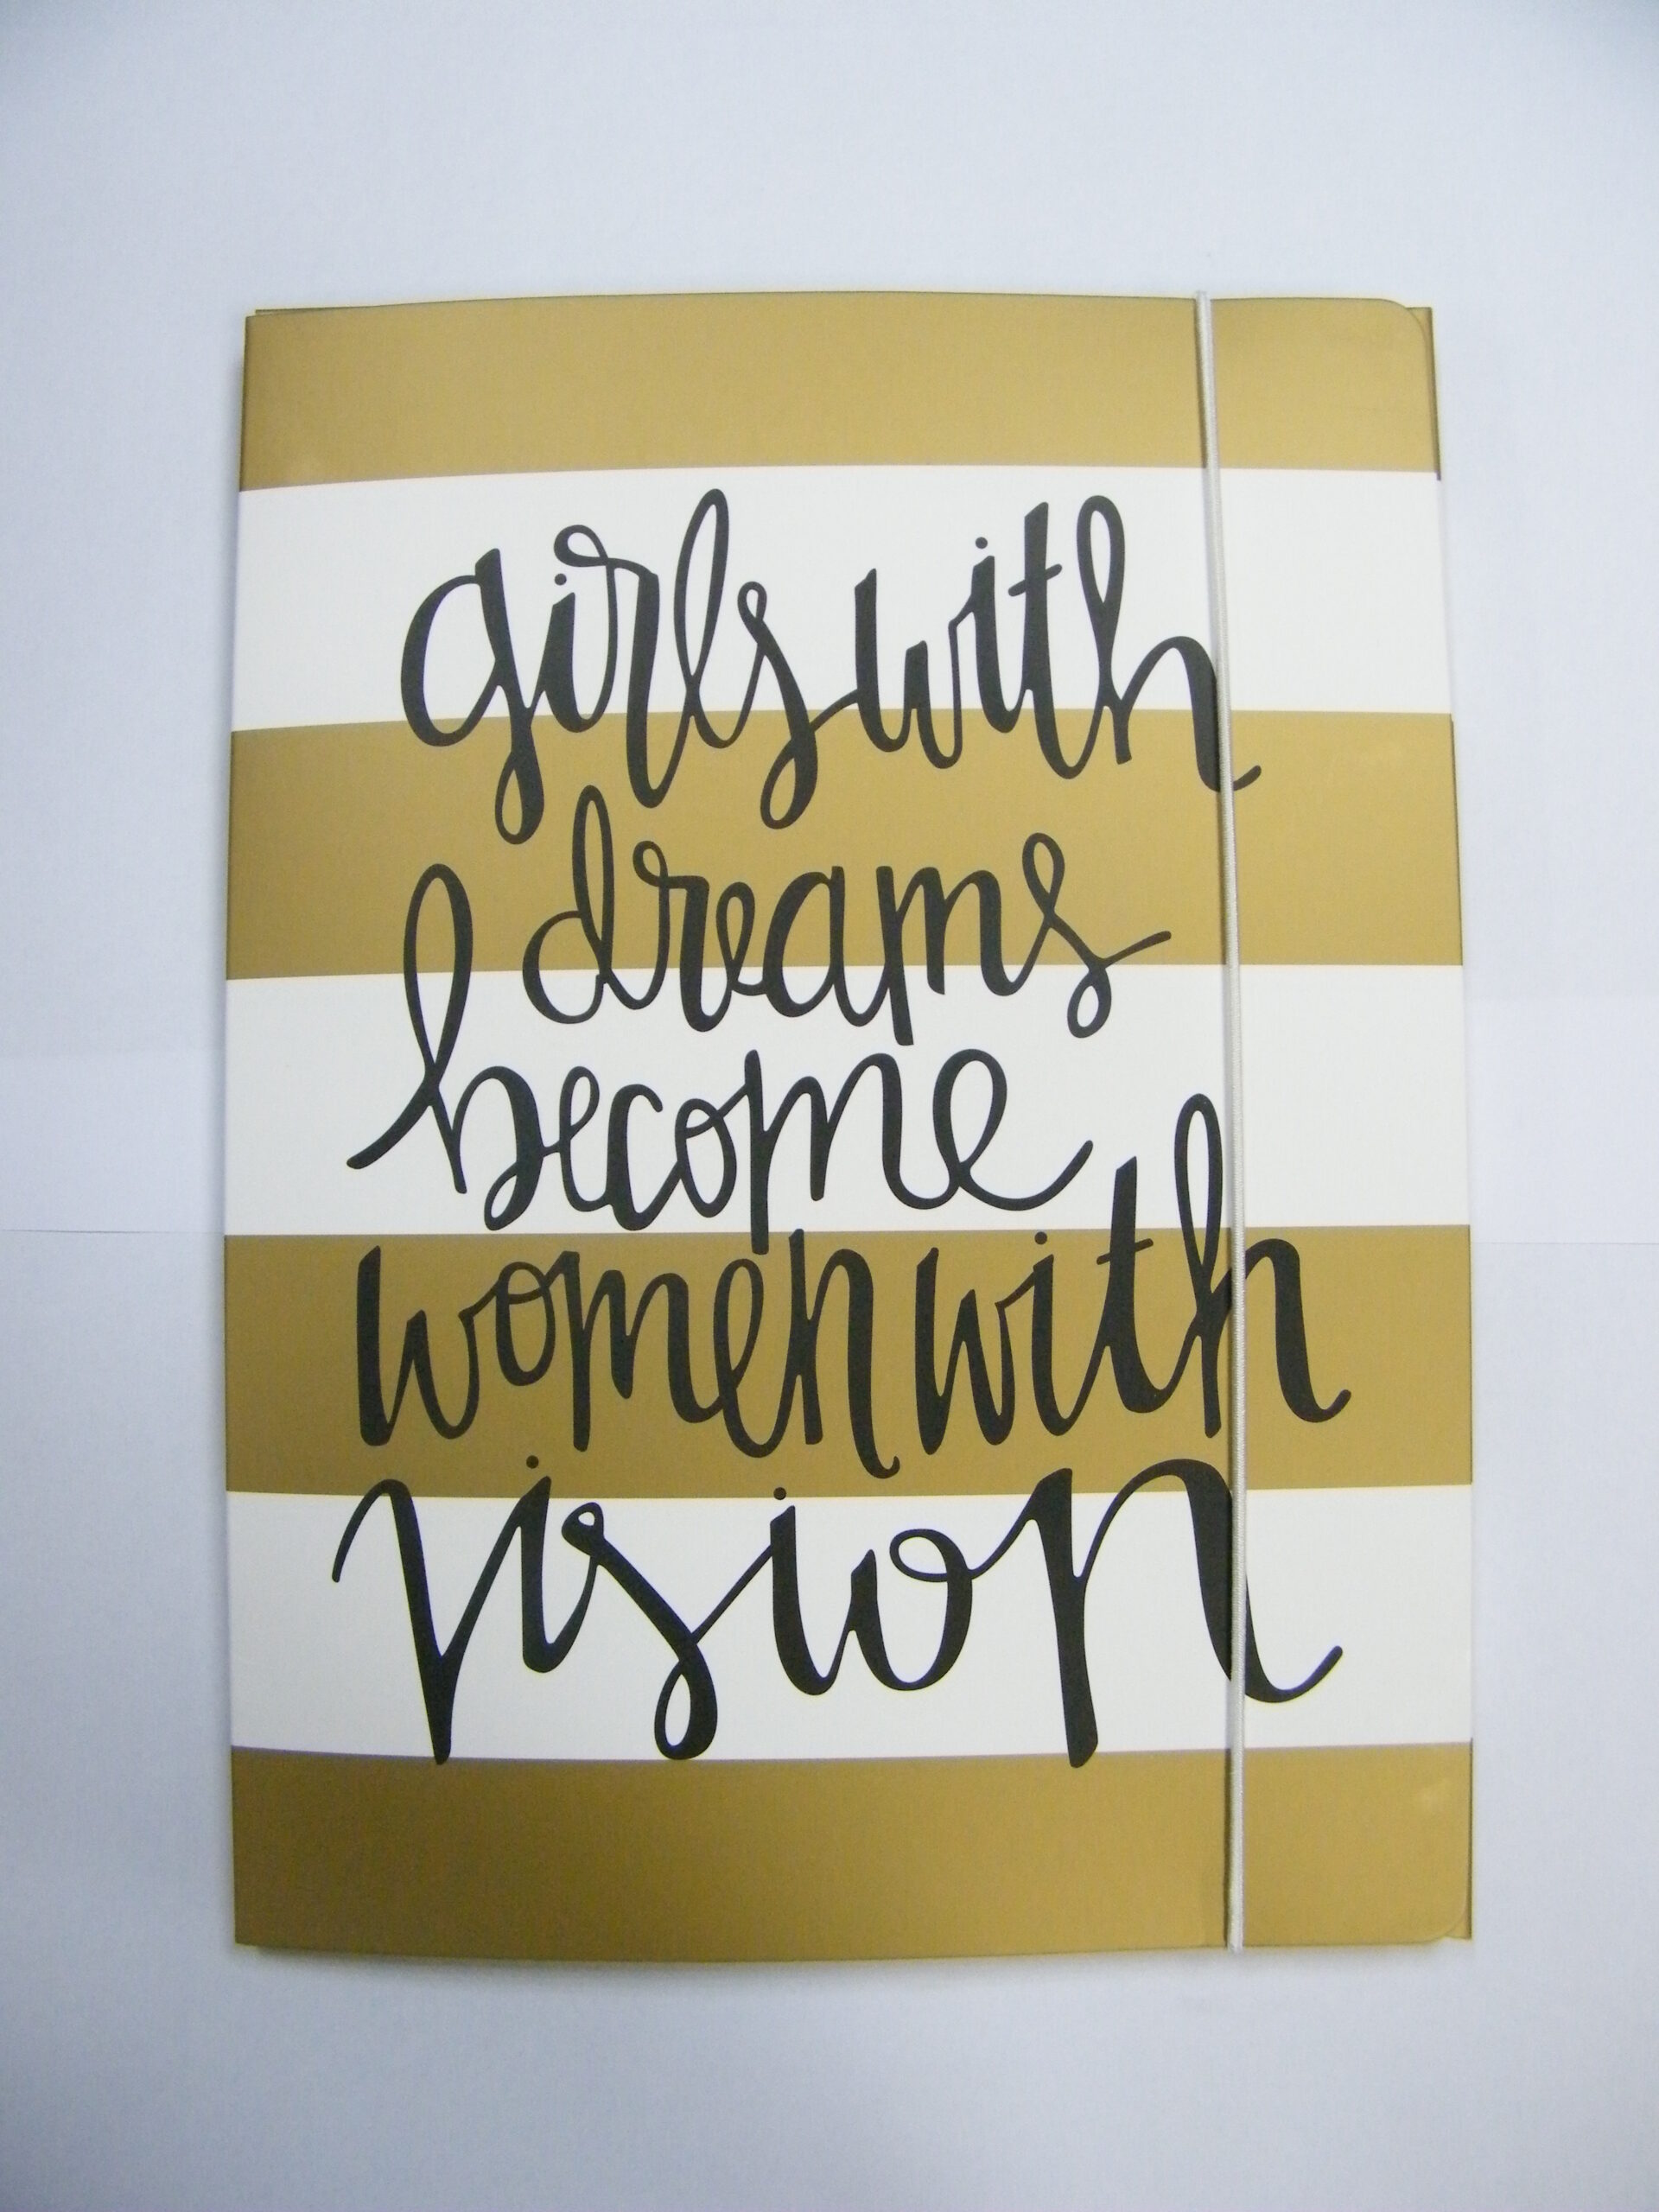 girls with
dreams
become
women with
vision